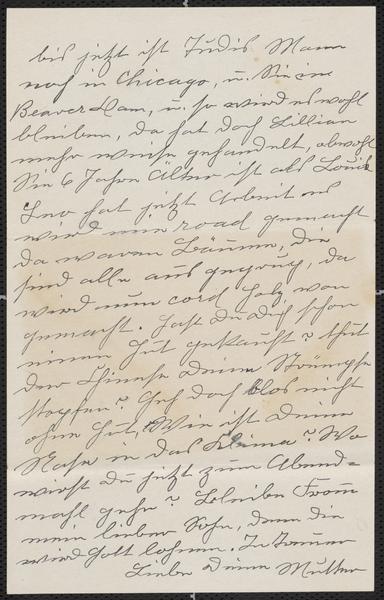 bis jetzt ist Judis Mann
noch in Chicago, u. Sie in
Beaver Dam, u. so wird es wohl
bleiben, da hat doch Lillian
mehr weise gehandelt, obwohl
Sie 6 Jahre älter ist als Louis
Leo hat jetzt Arbeit es
wird eine road gemacht
da waren Bäume, die
sind alle aus gegruv, da
wird nun cord Holz von
gemacht. Hast Du Dich schon
einen Hut gekauft? thut
der Chinese Deine Strümpfe
stopfen? Geh doch blos nicht
ohne Hut, Wie ist Deine
Nase in das Klima? Wo
wirst du jetzt zum Abend=
mahl gehn? Bleibe From
mein lieber Sohn, denn die
wird Gott lohnen. In Treuer
Liebe Deine Mutter